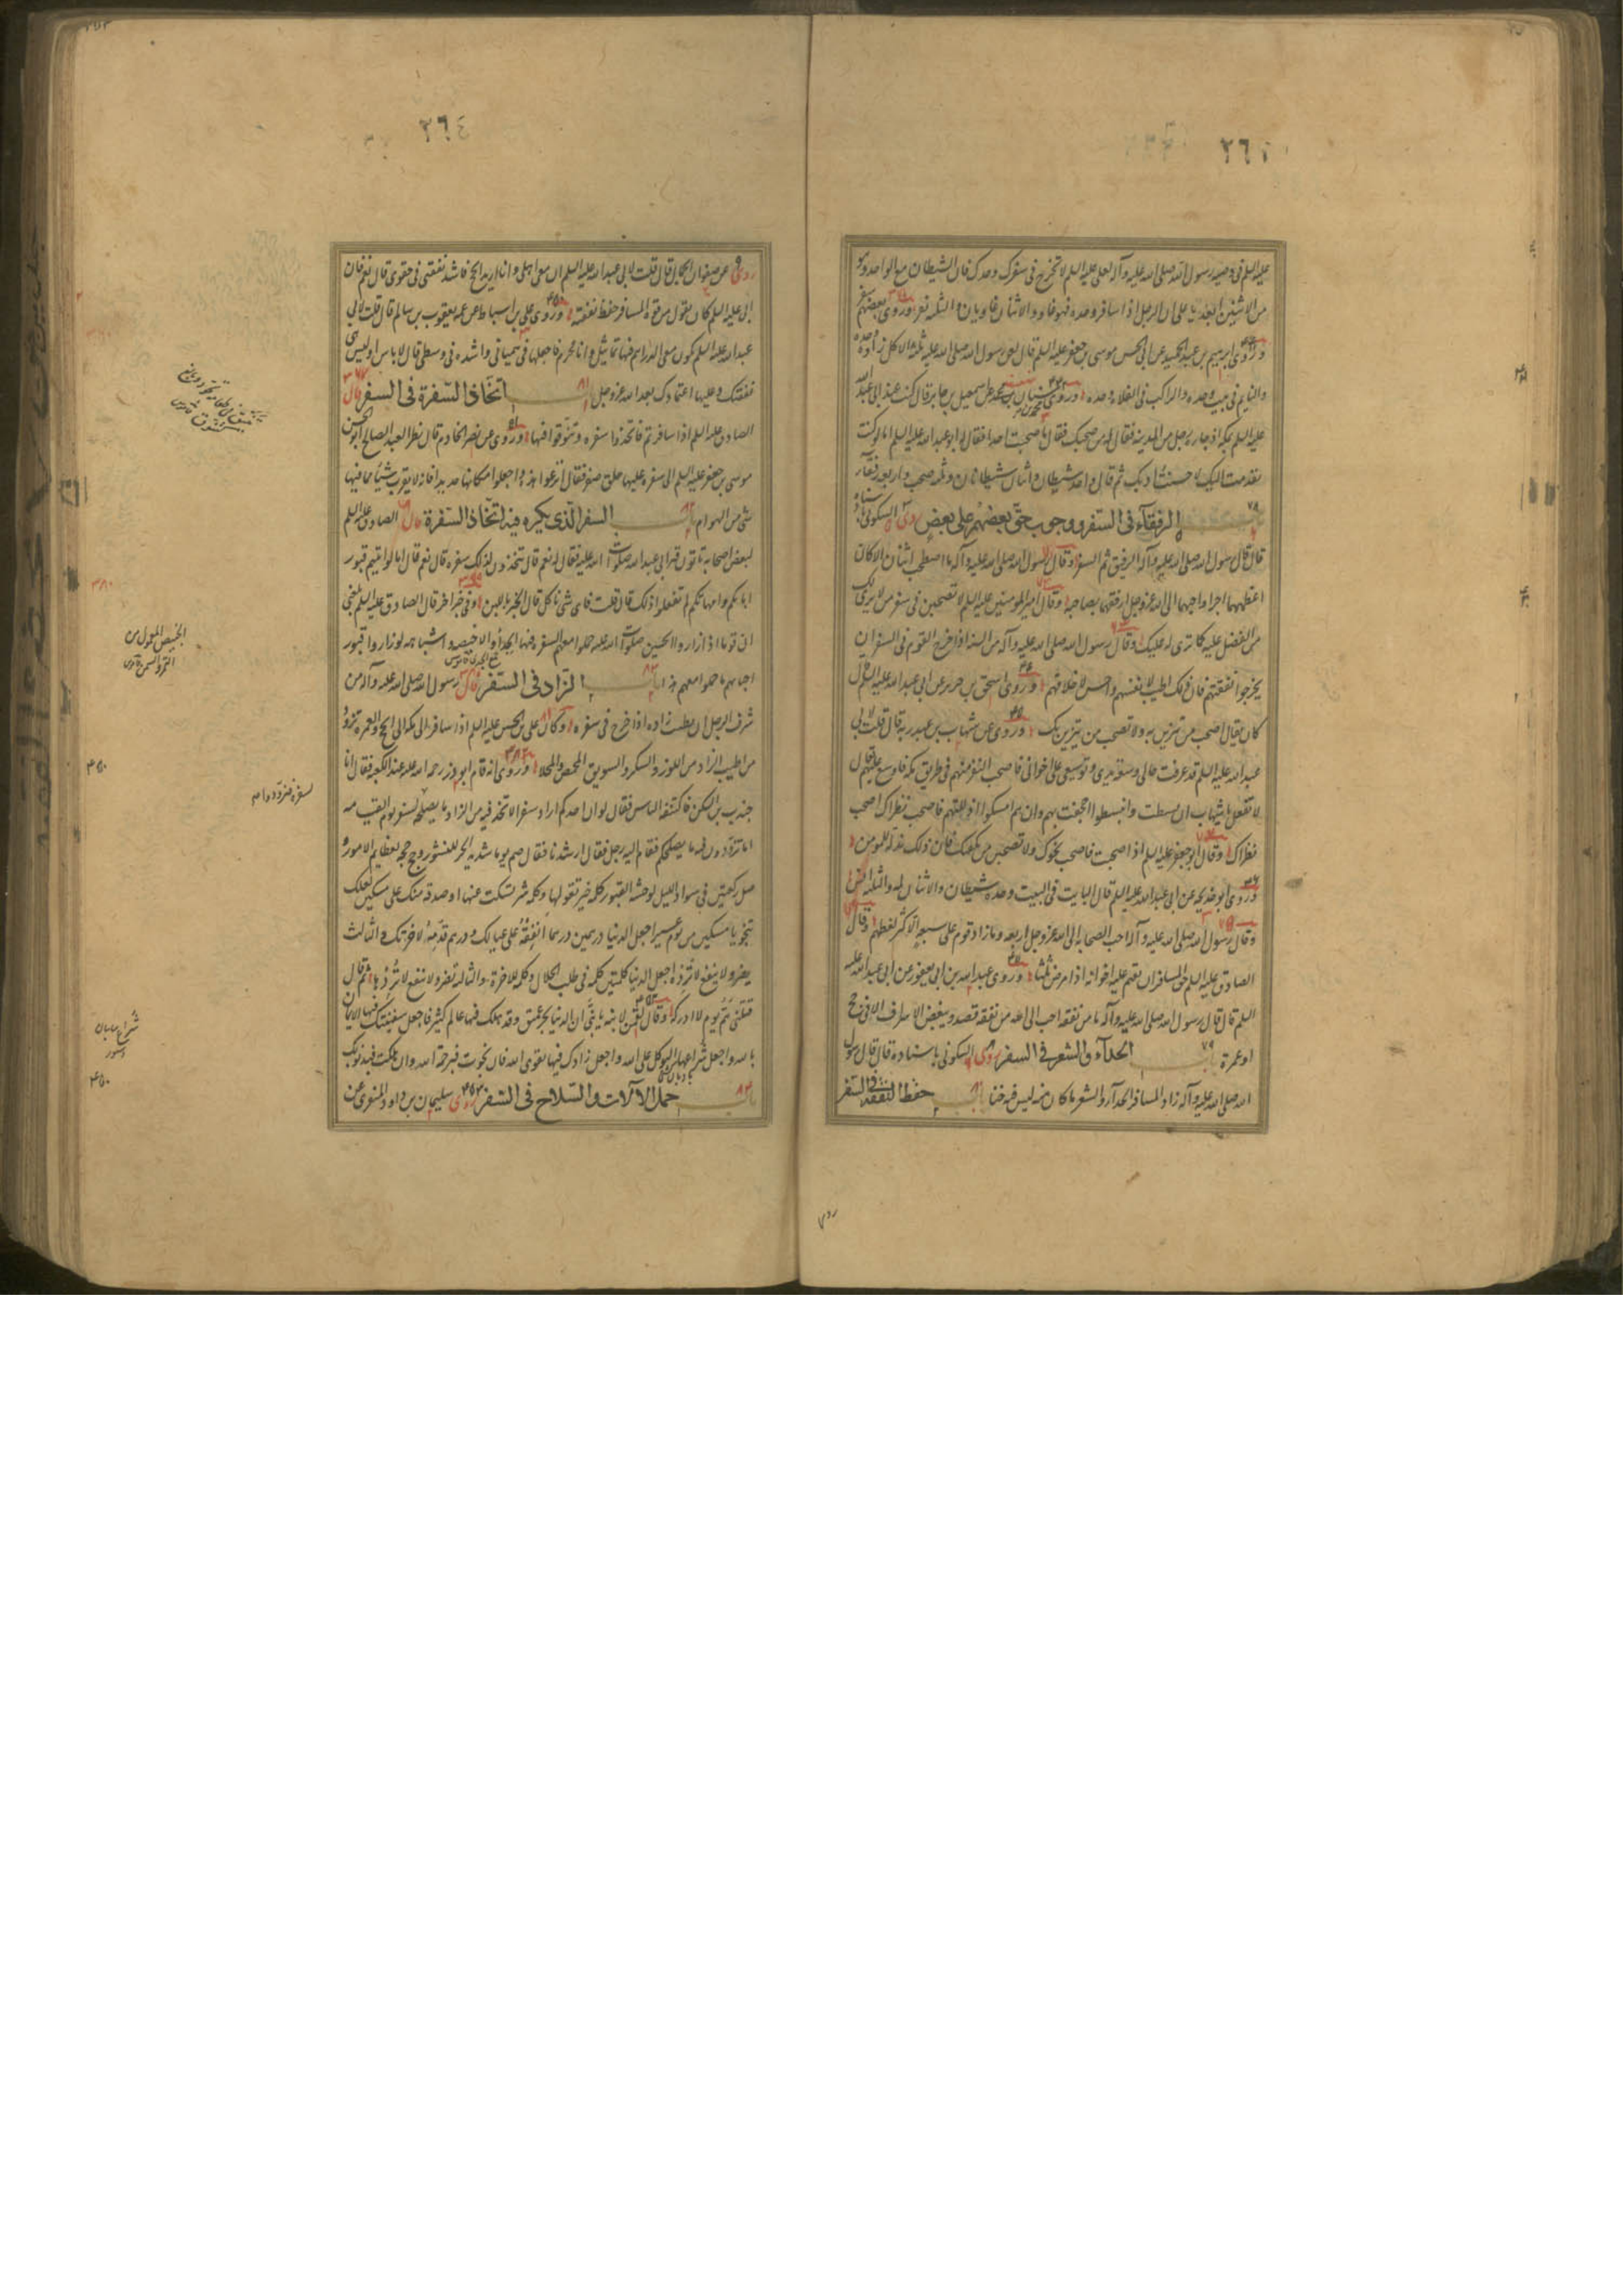 ٢٦٣
عليه السلم في وصية رسول الله صلى الله عليه وآله لعلي عليه السلم لا تخرج في سفرك وحدك فان الشيطان مع الواحد وهو
من الاثنين ابعد يا علي ان الرجل اذا سافر وحده فهو غاو والاثنان غاويان والثلثة نفر وروى بعضهم سفر
وروى ابرهيم بن عبد الحميد عن ابي الحسن موسى بن جعفر عليه السلم قال لعن رسول الله صلى الله عليه وآله ثلثة الاكل زاده وحده
والنايم في بيت وحده والراكب في الفلاة وحده وروى محمد بن سنان عن اسمعيل بن جابر قال كنت عند ابي عبد الله
عليه السلم بمكة اذ جاءه رجل من المدينة فقال له من صحبك فقال ما صحبت احدا فقال له ابو عبد الله عليه السلم اما لو كنت
تقدمت اليك لاحسنت ادبك ثم قال واحد شيطان واثنان شيطانان وثلثة صحب واربعة رفقاء
باب ٧٨ الرفقاء في السفر ووجوب حق بعضهم على بعض روى السكوني باسناده
قال قال رسول الله صلى الله عليه وآله الرفيق ثم السفر وقال رسول الله صلى الله عليه وآله ما اصطحب اثنان الا كان
اعظمهما اجرا واحبهما الى الله عز وجل ارفقهما بصاحبه وقال امير المومنين عليه السلم لا تصحبن في سفر من لا يرى لك
من الفضل عليه كما ترى له عليك وقال رسول الله صلى الله عليه وآله من السنة اذا خرج القوم في السفر ان
يخرجوا نفقتهم فان ذلك اطيب لانفسهم واحسن لاخلاقهم وروى اسحق بن جرير عن ابي عبد الله عليه السلم قال
كان يقال اصحب من تتزين به ولا تصحب من يتزين بك وروى عن شهاب بن عبد ربه قال قلت لابي
عبد الله عليه السلم قد عرفت حالي وسعة يدي وتوسيعي على اخواني فاصحب النفر منهم في طريق مكة فاوسع عليهم قال
لا تفعل يا شهاب ان بسطت وانبسطوا اجحفت بهم وان هم امسكوا اذللتهم فاصحب نظراك اصحب
نظراك وقال ابو جعفر عليه السلم اذا صحبت فاصحب نحوك ولا تصحبن من يكفيك فان ذلك مذلة للمومن
وروى ابو خديجة عن ابي عبد الله عليه السلم قال البايت في البيت وحده شيطان والاثنان لمة والثلثة انس
وقال رسول الله صلى الله عليه وآله احب الصحابة الى الله عز وجل اربعة وما زاد قوم على سبعة الا كثر لغطهم وقال
الصادق عليه السلم حق المسافر ان يقيم عليه اخوانه اذا مرض ثلثا وروى عبد الله بن ابي يعفور عن ابي عبد الله عليه
السلم قال قال رسول الله صلى الله عليه وآله ما من نفقة احب الى الله من نفقة قصد ويبغض الاسراف الا في حج
او عمرة باب ٧٩ الحداء والشعر في السفر روى السكوني باسناده قال قال رسول
الله صلى الله عليه وآله زاد المسافر الحداء والشعر ما كان منه ليس فيه خنا باب ٨٠ حفظ النفقة في السفر
روى
٢٦٤
روى عن صفوان الجمال قال قلت لابي عبد الله عليه السلم ان معي اهلي وانا اريد الحج فاشد نفقتي في حقوي قال نعم فان
ابي عليه السلم كان يقول من قوة المسافر حفظ نفقته وروى علي بن اسباط عن عمه يعقوب بن سالم قال قلت لابي
عبد الله عليه السلم يكون معي الدراهم فيها تماثيل وانا محرم فاجعلها في همياني واشده في وسطي قال لا باس او ليس هي
نفقتك وعليها اعتمادك بعد الله عز وجل باب ٨١ اتخاذ السفرة في السفر قال
الصادق عليه السلم اذا سافرتم فاتخذوا سفرة وتنوقوا فيها وروى عن نصر الخادم قال نظر العبد الصالح ابو الحسن
موسى بن جعفر عليه السلم الى سفرة عليها حلق صفر فقال انزعوا هذه واجعلوا مكانها حديدا فانه لا يقرب شيئا مما فيها
شي من الهوام باب ٨٢ السفر الذي يكره فيه اتخاذ السفرة قال الصادق عليه السلم
لبعض اصحابه تاتون قبر ابي عبد الله صلوات الله عليه فقال له نعم قال تتخذون لذلك سفرة قال نعم قال اما لو اتيتم قبور
ابائكم وامهاتكم لم تفعلوا ذلك قال قلت فاي شي ناكل قال الخبز باللبن وفي خبر اخر قال الصادق عليه السلم بلغني
ان قوما اذا زاروا الحسين صلوات الله عليه حملوا معهم السفرة فيها الجداء والاخبصة واشباهه لو زاروا قبور
احبابهم ما حملوا معهم هذا باب ٨٣ الزاد في السفر قال رسول الله صلى الله عليه وآله من
شرف الرجل ان يطيب زاده اذا خرج في سفره وكان علي بن الحسين عليه السلم اذا سافر الى مكة الى الحج والعمرة تزود
من اطيب الزاد من اللوز والسكر والسويق المحمص والمحلا وروى انه قام ابو ذر رحمة الله عليه عند الكعبة فقال انا
جندب بن السكن فاكتنفه الناس فقال لو ان احدكم اراد سفرا لاتخذ فيه من الزاد ما يصلحه لسفره يوم القيمة
اما تزودون فيه ما يصلحكم فقام اليه رجل فقال ارشدنا فقال صم يوما شديد الحر للنشور وحج حجة لعظايم الامور و
صل ركعتين في سواد الليل لوحشة القبور كلمة خير تقولها وكلمة شر تسكت عنها او صدقة منك على مسكين لعلك
تنجو يا مسكين من يوم عسير اجعل الدنيا درهمين درهما انفقته على عيالك ودرهم قدمته لاخرتك والثالث
يضر ولا ينفع لا ترده اجعل الدنيا كلمتين كلمة في طلب الحلال وكلمة للاخرة والثالثة تضر ولا تنفع لا تردها ثم قال
قتلني هم يوم لا ادركه وقال لقمن لابنه يا بني ان الدنيا بحر عميق وقد هلك فيها عالم كثير فاجعل سفينتك فيها الايمان
بالله واجعل شراعها التوكل على الله واجعل زادك فيها تقوى الله فان نجوت فبرحمة الله وان هلكت فبذنوبك
باب ٨٤ حمل الالات والسلاح في السفر روى سليمن بن داود المنقري عن